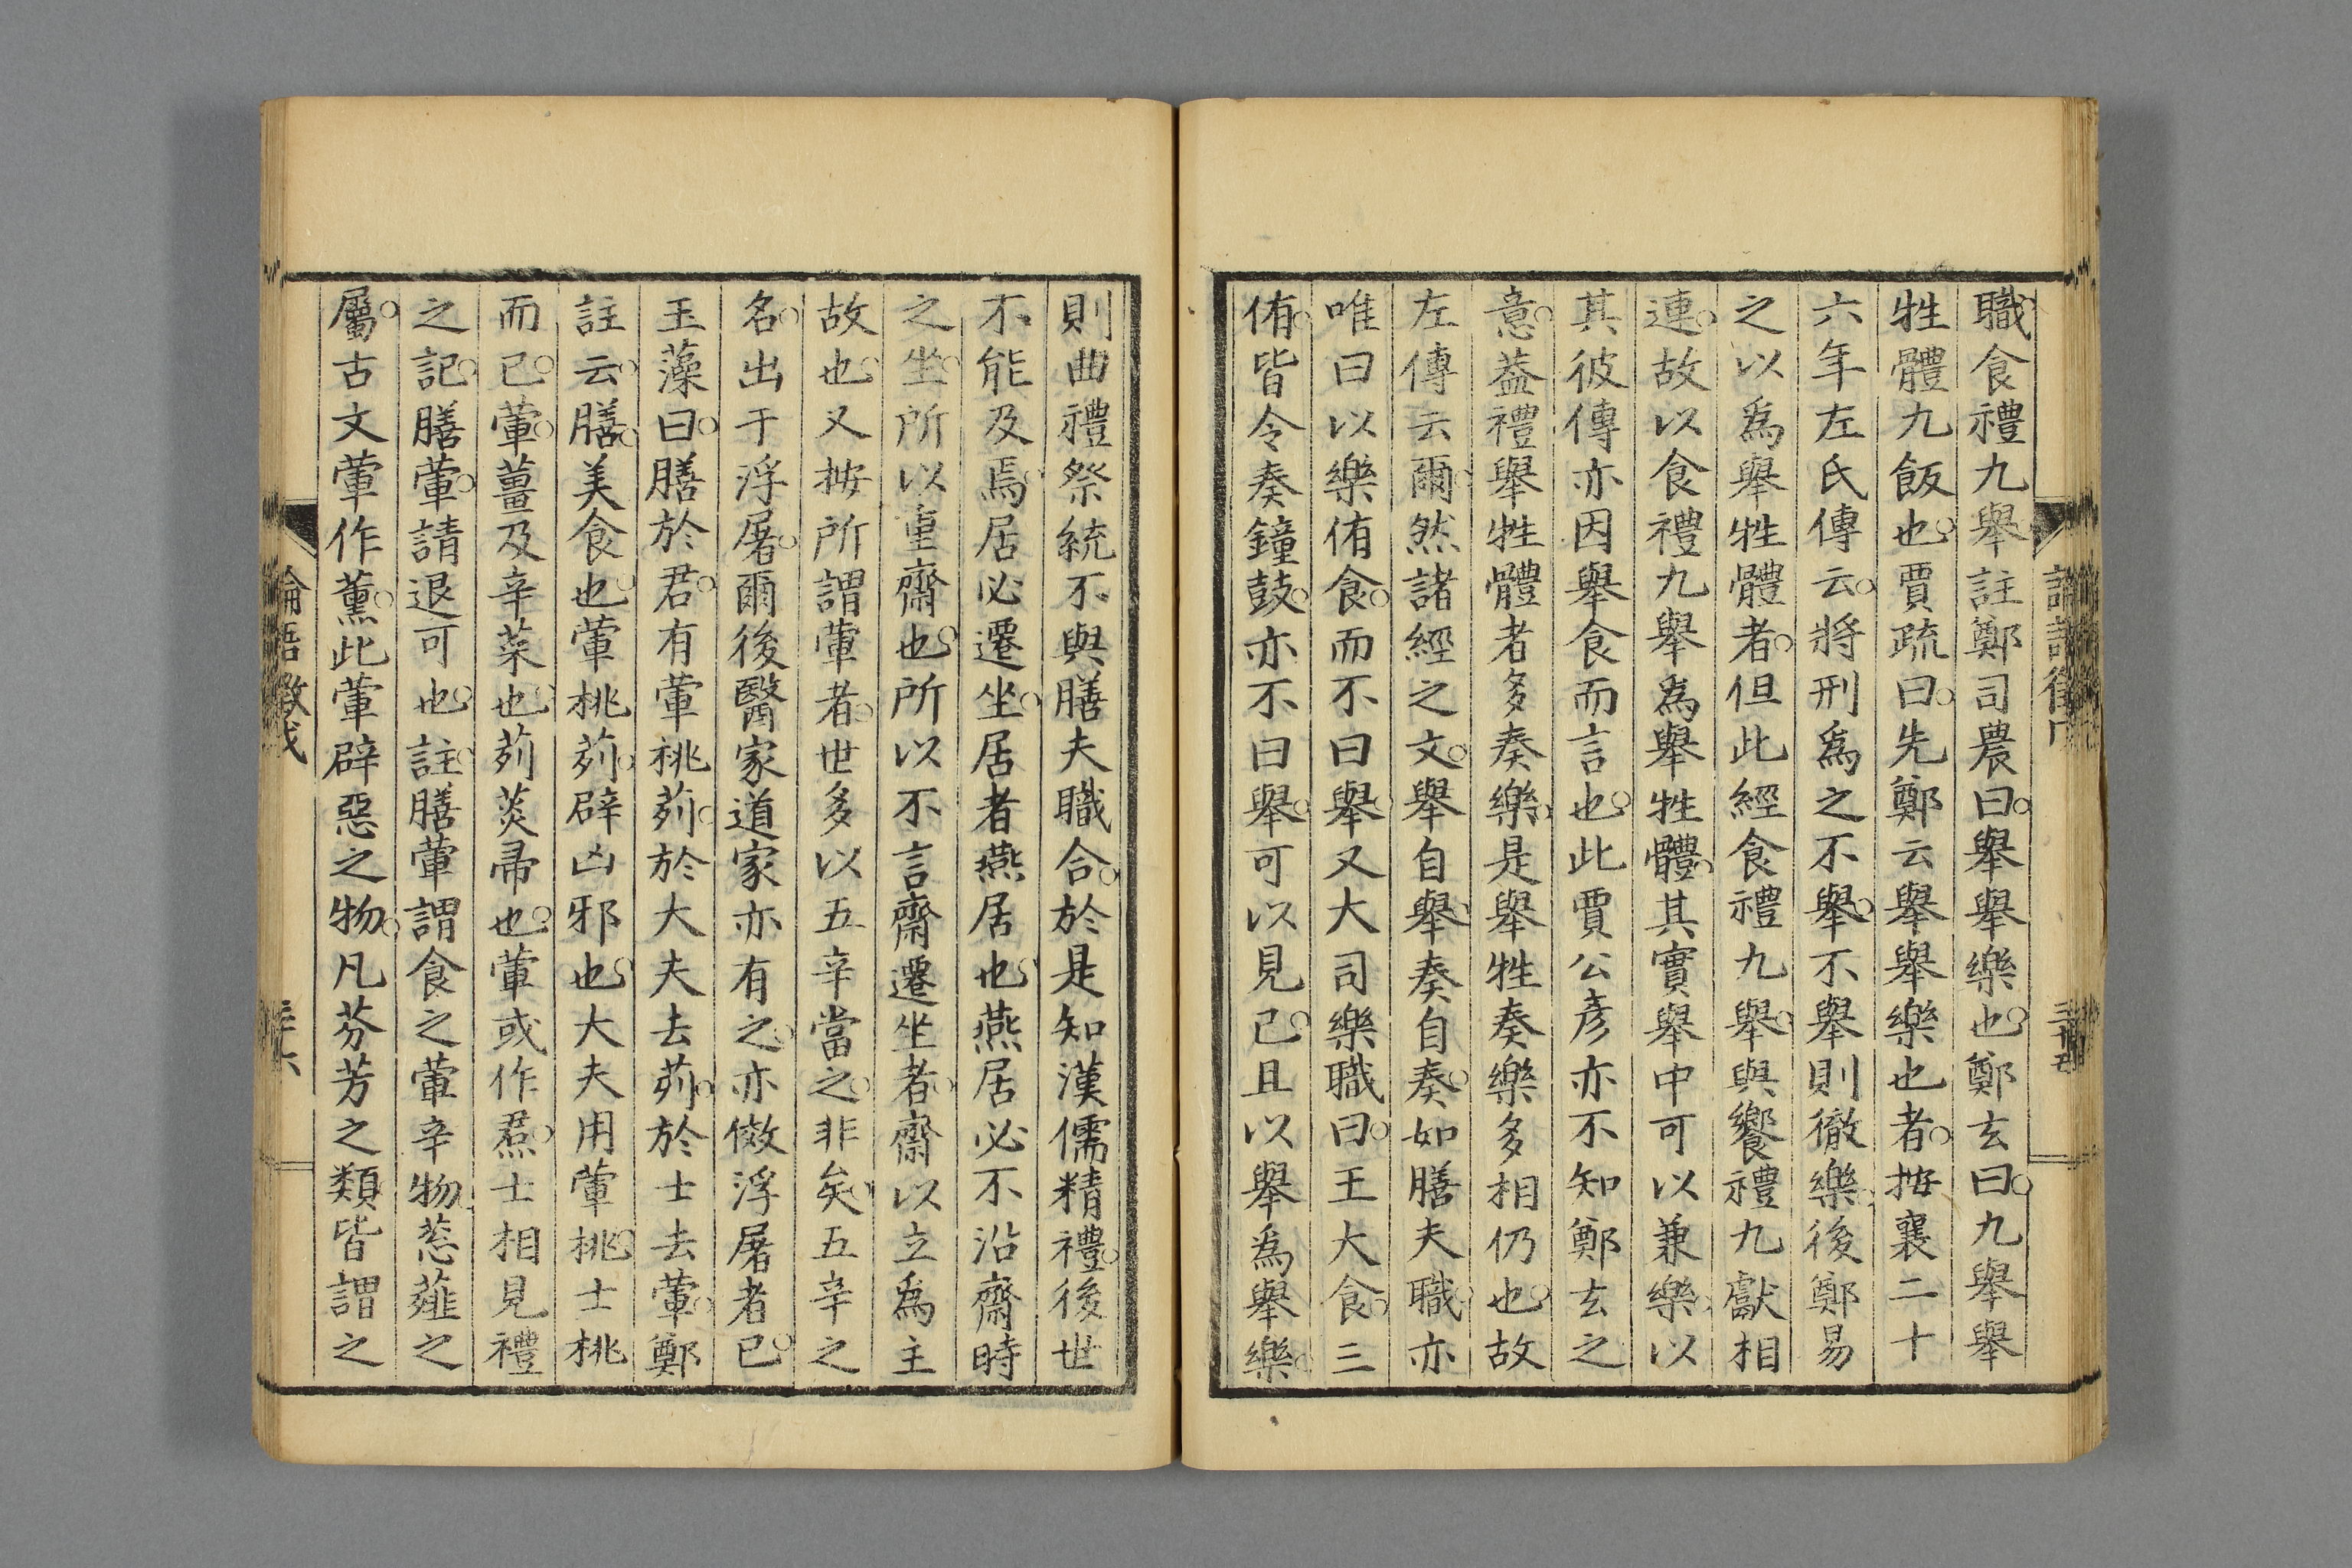 職食禮九舉註鄭司農曰舉舉樂也鄭玄曰九舉舉
牲體九飯也賈疏曰先鄭云舉舉樂也者按襄二十
六年左氏傳云將刑爲之不舉不舉則徹樂後鄭易
之以爲舉牲體者但此經食禮九舉與饗禮九獻相
連故以食禮九舉爲舉牲體其實舉中可以兼樂以
其彼傳亦因舉食而言也此賈公彥亦不知鄭玄之
意葢禮舉牲體者多奏樂是舉牲奏樂多相仍也故
左傳云爾然諸經之文舉自舉奏自奏如膳夫職亦
唯曰以樂侑食而不曰舉又大司樂職曰王大食三
侑皆令奏鐘鼓亦不曰舉可以見已且以舉爲舉樂
則曲禮祭統不與膳夫職合於是知漢儒精禮後世
不能及焉居必遷坐居者燕居也燕居必不沿齋時
之坐所以重齋也所以不言齋遷坐者齋以立爲主
故也又按所謂葷者世多以五辛當之非矣五辛之
名出于浮屠爾後醫家道家亦有之亦倣浮屠者已
玉藻曰膳於君有葷桃茢於大夫去茢於士去葷鄭
註云膳美食也葷桃茢辟凶邪也大夫用葷桃士桃
而已葷薑及辛菜也茢菼帚也葷或作焄士相見禮
之記膳葷請退可也註膳葷謂食之葷辛物葱薤之
屬古文葷作薰此葷辟惡之物凡芬芳之類皆謂之